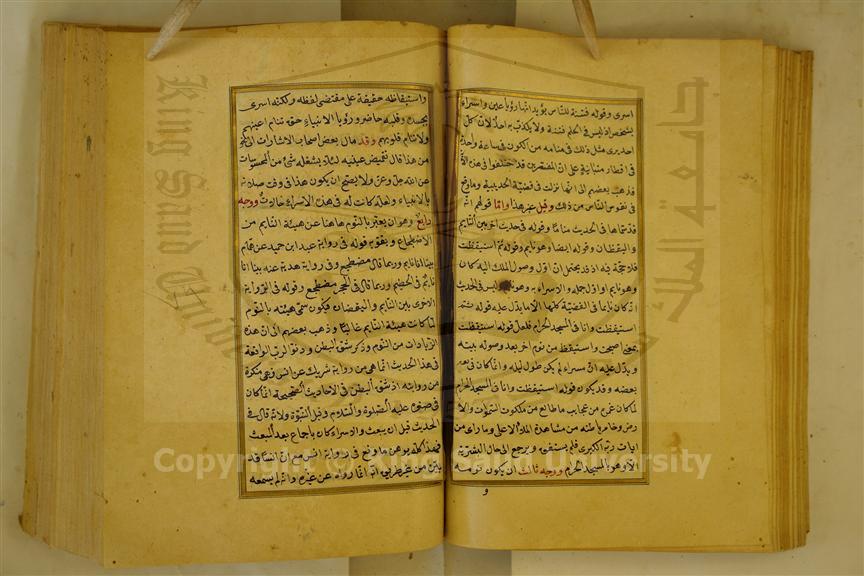 اسرى وقوله فتنة للناس يؤيد انها رؤيا عين واسراء
بشخص اذ ليس في الحلم فتنة ولا يكذب به احد لان كل
احد يرى مثل ذلك في منامه من الكون في ساعة واحدة
في اقطار متباينة على ان المفسرين قد اختلفوا في هذه
فذهب بعضهم الى انها نزلت في قضية الحديبية وما وقع
في نفوس الناس من ذلك وقيل غير هذا واما قولهم انه
قد سماها في الحديث مناما وقوله في حديث اخر بين النايم
واليقظان وقوله ايضا وهو نايم وقوله ثم استيقظت
فلا حجة فيه اذ قد يحتمل ان اول وصول الملك اليه كان
وهو نايم او اول حمله والاسراء به وهو نايم وليس في الحديث
انه كان نايما في القضية كلها الا ما يدل عليه قوله ثم
استيقظت وانا في المسجد الحرام فلعل قوله استيقظت
بمعنى اصبحت واستيقظ من نوم اخر بعد وصوله بيته
ويدل عليه ان مسراه لم يكن طول ليله وانما كان في بعضه
وقد يكون قوله استيقظت وانا في المسجد الحرام
لما كان غمره من عجايب ما طالع من ملكوت السموات والا
رض وخامر باطنه من مشاهدة الملاء الاعلى وما راى من
ايات ربه الكبرى فلم يستفق ويرجع الى حال البشرية
الا وهو بالمسجد الحرام ووجه ثالث ان يكون نومه
و
واستيقاظه حقيقة على مقتضى لفظه ولكنه اسرى
بجسده وقلبه حاضر ورؤيا الانبياء حق تنام اعينهم
ولا تنام قلوبهم وقد مال بعض اصحاب الاشارات الى نحو
من هذا قال تغميض عينيه لئلا يشغله شئ من المحسوسات
عن الله عز وجل ولا يصح ان يكون هذا في وقت صلاته
بالانبياء ولعله كانت له في هذه الاسراء حالات ووجه
رابع وهو ان يعبر بالنوم هاهنا عن هيئة النايم من
الاضطجاع ويقويه قوله في رواية عبد ابن حميد عن همام
بينا انا نايم وربما قال مضطجع وفي رواية هدبة عنه بينا انا
نايم في الحطيم وربما قال في الحجر مضطجع وقوله في الرواية
الاخرى بين النايم واليقضان فيكون سمى هيئته بالنوم
لما كانت هيئة النايم غالبا وذهب بعضهم الى ان هذه
الزيادات من النوم وذكر شق البطن ودنو الرب الواقعة
في هذا الحديث انما هي من رواية شريك عن انس فهي منكرة
من روايته اذ شق البطن في الاحاديث الصحيحة انما كان
في صغره عليه الصلوة والسلام وقبل النبوة ولانه قال في
الحديث قبل ان يبعث والاسراء كان باجماع بعد المبعث
فهذا كله يوهن ما وقع في رواية انس مع ان انسا قد
بين من غير طريق انه انما رواه عن غيره وانه لم يسمعه
Copyright © King Saud University
King Saud University
جامعة الملك